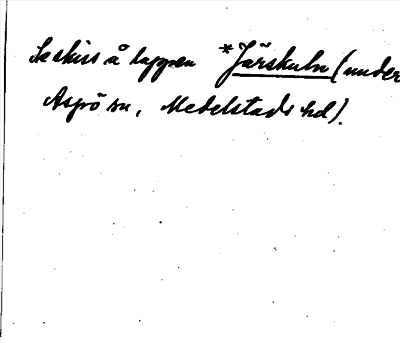 Se skiss å lappen *Järskulu (under
Aspö sn, Medelstads hd).